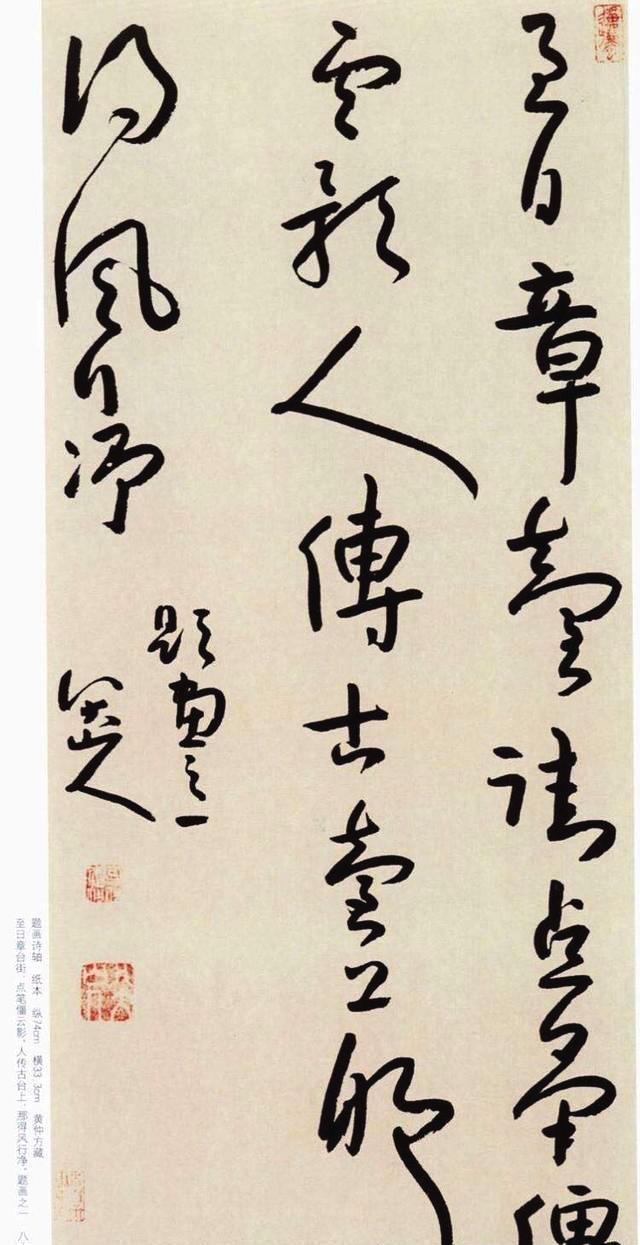 至日章臺街點筆
雲影人傳古臺上那
得風行淨
題畫之一
八大山人
题画诗轴 纸本 纵74cm 横33.3cm 黄仲方藏
至日章台街,点笔懂云影,人传古台上,那得风行净。题画之一 八